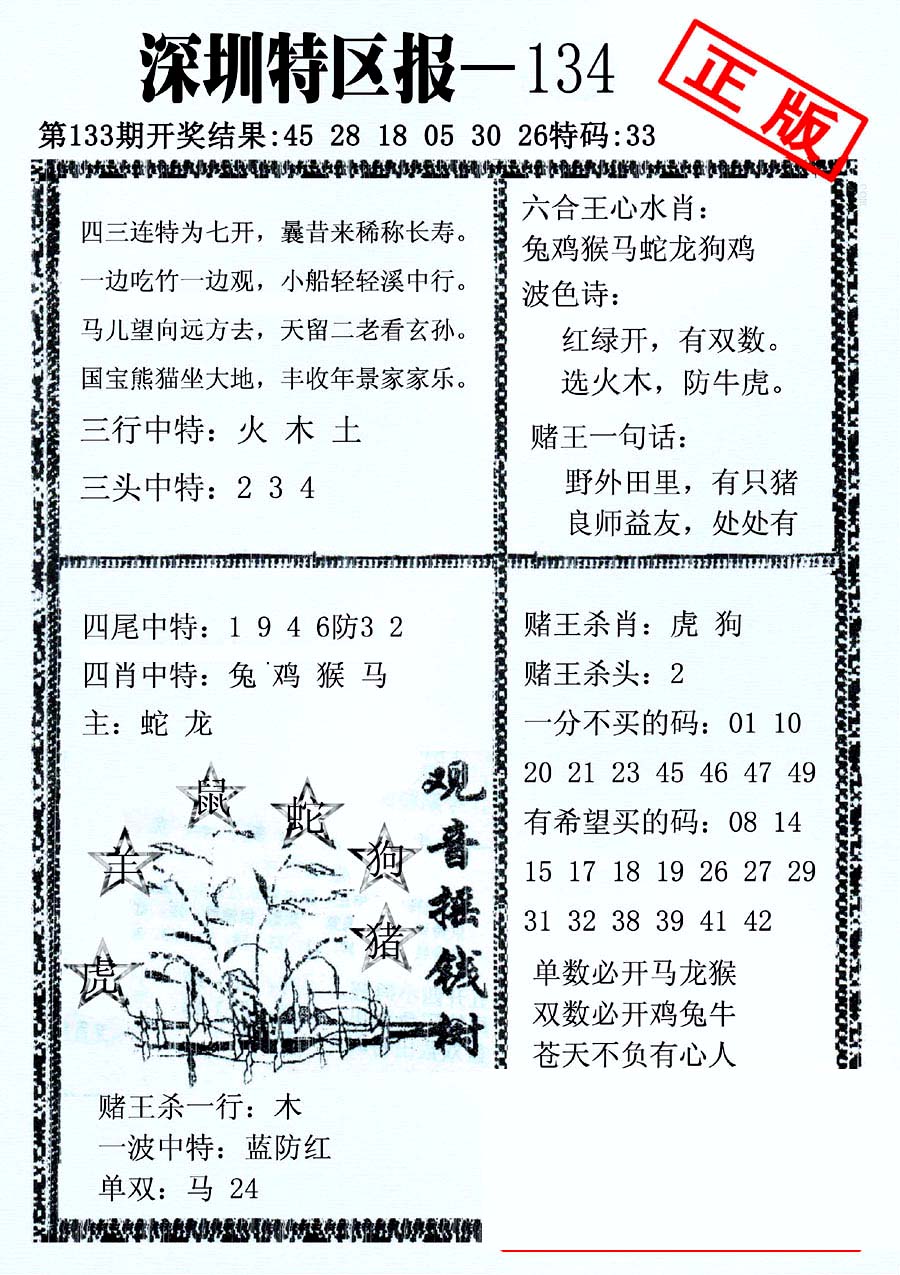 深圳特区报—134
正版
第133期开奖结果:45 28 18 05 30 26特码:33
四三连特为七开，曩昔来稀称长寿。
一边吃竹一边观，小船轻轻溪中行。
马儿望向远方去，天留二老看玄孙。
国宝熊猫坐大地，丰收年景家家乐。
三行中特：火 木 土
三头中特：2 3 4
六合王心水肖：
兔鸡猴马蛇龙狗鸡
波色诗：
红绿开，有双数。
选火木，防牛虎。
赌王一句话：
野外田里，有只猪
良师益友，处处有
四尾中特：1 9 4 6防3 2
四肖中特：兔 鸡 猴 马
主：蛇 龙
鼠
蛇
羊
狗
猪
虎
观音摇钱树
赌王杀一行：木
一波中特：蓝防红
单双：马 24
赌王杀肖：虎 狗
赌王杀头：2
一分不买的码：01 10
20 21 23 45 46 47 49
有希望买的码：08 14
15 17 18 19 26 27 29
31 32 38 39 41 42
单数必开马龙猴
双数必开鸡兔牛
苍天不负有心人